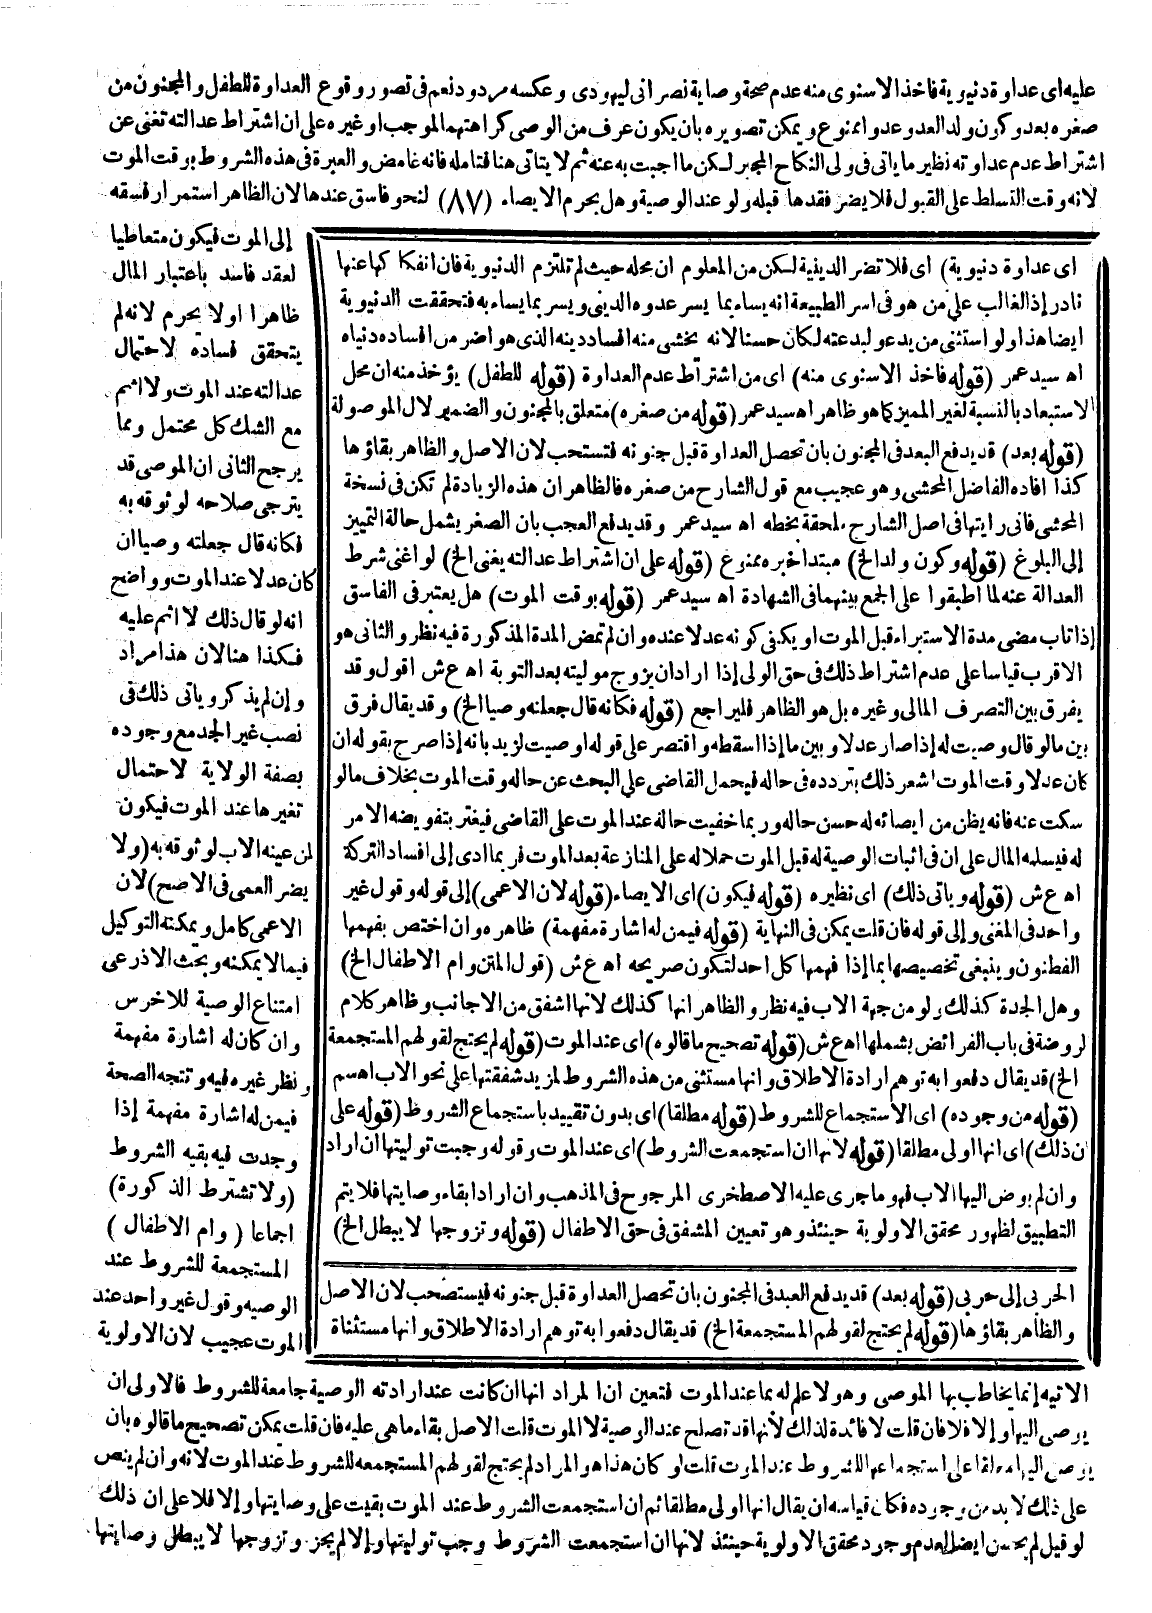 عليه اى عداوة دنيوية فاخذ الاسنوى منه عدم صحة وصاية نصرانى ليهودى وعكسه مردود نعم فى تصور وقوع العداوة للطفل والمجنون من
صغره بعد وكون ولد العدو عدوا ممنوع ويمكن تصويره بان يكون عرف من الوصى كراهتهما لموجب او غيره على ان اشتراط عدالته تغنى عن
اشتراط عدم عداوته نظير ما ياتى فى ولى النكاح المجبر لكن ما اجبت به عنه ثم لا يتاتى هنا فتامله فانه غامض والعبرة فى هذه الشروط بوقت الموت
لانه وقت التسلط على القبول فلا يضر فقدها قبله ولو عند الوصية وهل يحرم الايصاء (٨٧) لنحو فاسق عندها لان الظاهر استمرار فسقه
إلى الموت فيكون متعاطيا
لعقد فاسد باعتبار المال
ظاهرا اولا يحرم لانه لم
يتحقق فساده لاحتمال
عدالته عند الموت ولا اثم
مع الشك كل محتمل ومما
يرجح الثانى ان الموصى قد
يترجى صلاحه لوثوقه به
فكانه قال جعلته وصيا ان
كان عدلا عند الموت وواضح
انه لو قال ذلك لا اثم عليه
فكذا هنا لان هذا مراد
وإن لم يذكر وياتى ذلك فى
نصب غير الجد مع وجوده
بصفة الولاية لاحتمال
تغيرها عند الموت فيكون
لمن عينه الاب لوثوقه به (ولا
يضر العمى فى الاصح) لان
الاعمى كامل ويمكنه التوكيل
فيما لا يمكنه وبحث الاذرعى
امتناع الوصية للاخرس
وان كان له اشارة مفهمة
ونظر غيره فيه وتتجه الصحة
فيمن له اشارة مفهمة إذا
وجدت فيه بقيه الشروط
(ولا تشترط الذكورة)
اجماعا (وام الاطفال)
المستجمعة للشروط عند
الوصيه وقول غير واحد عند
الموت عجيب لان الاولوية
اى عداوة دنيوية) اى فلا تضر الدينية لكن من المعلوم ان محله حيث لم تلتزم الدنيوية فان انفكاكها عنها
نادر إذ الغالب على من هو فى اسر الطبيعة انه يساء بما يسر عدوه الدينى ويسر بما يساء به فتحققت الدنيوية
ايضا هذا ولو استثنى من يدعو لبدعته لكان حسنا لانه يخشى منه افساد دينه الذى هو اضر من افساده دنياه
اه سيد عمر (قوله فاخذ الاسنوى منه) اى من اشتراط عدم العداوة (قوله للطفل) يؤخذ منه ان محل
الاستبعاد بالنسبة لغير المميز كما هو ظاهر اه سيد عمر (قوله من صغره) متعلق بالمجنون والضمير لال الموصولة
(قوله بعد) قد يدفع البعد فى المجنون بان تحصل العداوة قبل جنونه فتستحب لان الاصل والظاهر بقاؤها
كذا افاده الفاضل المحشى وهو عجيب مع قول الشارح من صغره فالظاهر ان هذه الزيادة لم تكن فى نسخة
المحشى فانى رايتها فى اصل الشارح ملحقة بخطه اه سيد عمر وقد يدفع العجب بان الصغر يشمل حالة التمييز
إلى البلوغ (قوله وكون ولد الخ) مبتدا خبره ممنوع (قوله على ان اشتراط عدالته يغنى الخ) لو اغنى شرط
العدالة عنه لما اطبقوا على الجمع بينهما فى الشهادة اه سيد عمر (قوله بوقت الموت) هل يعتبر فى الفاسق
إذا تاب مضى مدة الاستبراء قبل الموت او يكفى كونه عدلا عنده وان لم تمض المدة المذكورة فيه نظر والثانى هو
الاقرب قياسا على عدم اشتراط ذلك فى حق الولى إذا اراد ان يزوج موليته بعد التوبة اه ع ش اقول وقد
يفرق بين التصرف المالى وغيره بل هو الظاهر فليراجع (قوله فكانه قال جعلته وصيا الخ) وقد يقال فرق
بين ما لو قال وصيت له إذا صار عدلا وبين ما إذا اسقطه واقتصر على قوله اوصيت لزيد بانه إذا صرح بقوله ان
كان عدلا وقت الموت اشعر ذلك بتردده فى حاله فيحمل القاضى على البحث عن حاله وقت الموت بخلاف ما لو
سكت عنه فانه يظن من ايصائه له حسن حاله وربما خفيت حاله عند الموت على القاضى فيغتر بتفويضه الامر
له فيسلمه المال على ان فى اثبات الوصية له قبل الموت حملا له على المنازعة بعد الموت فربما ادى إلى افساد التركة
اه ع ش (قوله وياتى ذلك) اى نظيره (قوله فيكون) اى الايصاء (قوله لان الاعمى) إلى قوله وقول غير
واحد فى المغنى وإلى قوله فان قلت يمكن فى النهاية (قوله فيمن له اشارة مفهمة) ظاهره وان اختص بفهمها
الفطنون وينبغى تخصيصها بما إذا فهمها كل احد لتكون صريحه اه ع ش (قول المتن وام الاطفال الخ)
وهل الجدة كذلك ولو من جهة الاب فيه نظر والظاهر انها كذلك لانها اشفق من الاجانب وظاهر كلام
لروضة فى باب الفرائض يشملها اه ع ش (قوله تصحيح ما قالوه) اى عند الموت (قوله لم يحتج لقولهم المستجمعة
الخ) قد يقال دفعوا به توهم ارادة الاطلاق وانها مستثنى من هذه الشروط لمزيد شفقتها على نحو الاب اه سم
(قوله من وجوده) اى الاستجماع للشروط (قوله مطلقا) اى بدون تقييد باستجماع الشروط (قوله على
ن ذلك) اى انها اولى مطلقا (قوله لانها ان استجمعت الشروط) اى عند الموت وقوله وجبت توليتها ان اراد
وان لم يوص اليها الاب فهو ما جرى عليه الاصطخرى المرجوح فى المذهب وان اراد ابقاء وصايتها فلا يتم
التطبيق لظهور محقق الاولوية حينئذ وهو تعيين المشفق فى حق الاطفال (قوله وتزوجها لا يبطل الخ)
الحربى إلى حربى (قوله بعد) قد يدفع العبد فى المجنون بان تحصل العداوة قبل جنونه فيستصحب لان الاصل
والظاهر بقاؤها (قوله لم يحتج لقولهم المستجمعة الخ) قد يقال دفعوا به توهم ارادة الاطلاق وانها مستثناة
الاتيه إنما يخاطب بها الموصى وهو لا علم له بما عند الموت فتعين ان المراد انها ان كانت عند ارادته الوصية جامعة للشروط فالاولى ان
يوصى اليها وإلا فلا فان قلت لا فائدة لذلك لأنها قد تصلح عند الوصية لا الموت قلت الاصل بقاء ما هى عليه فان قلت يمكن تصحيح ما قالوه بان
يوصى اليها معلقا على استجماعها للشروط عند الموت قلت لو كان هذا هو المراد لم يحتج لقولهم المستجمعه للشروط عند الموت لانه وان لم ينص
على ذلك لا بد من وجوده فكان قياسه ان يقال انها اولى مطلقا ثم ان استجمعت الشروط عند الموت بقيت على وصايتها وإلا فلا على ان ذلك
لو قيل لم يحسن ايضا لعدم وجود محقق الاولوية حينئذ لانها ان استجمعت الشروط وجب توليتها وإلا لم يجز وتزوجها لا يبطل وصايتها